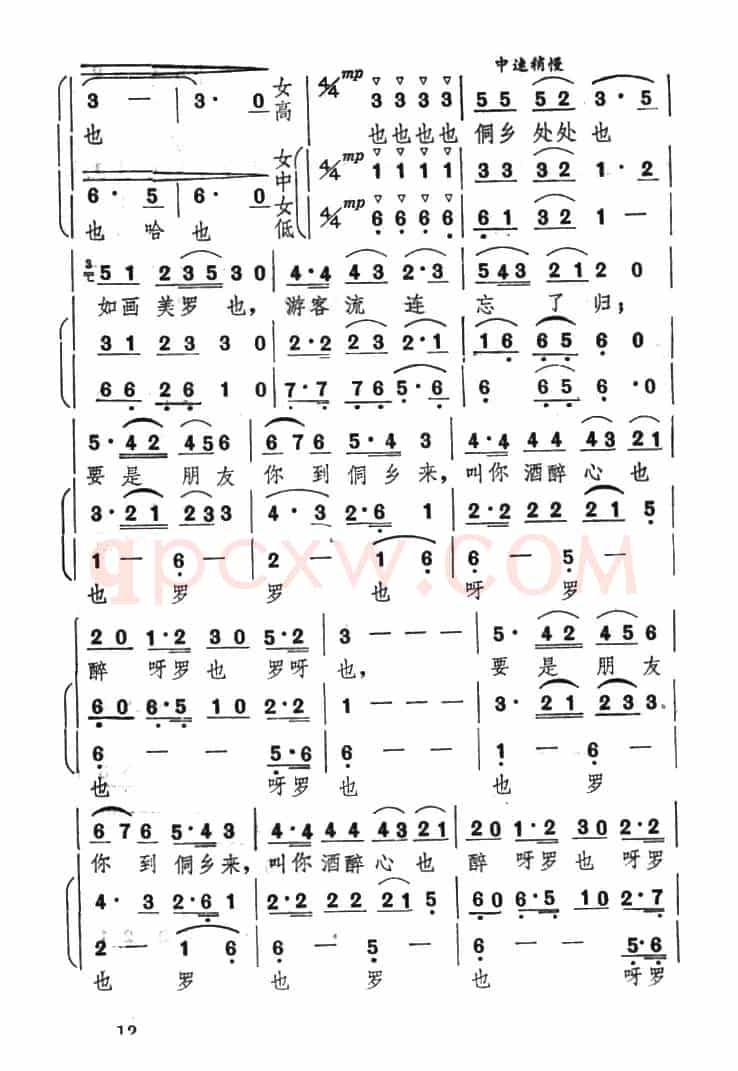 中速稍慢
3 — 3· 0 女高 4/4 mp 3 3 3 3 5 5 5 2 3· 5
也 也也也也 侗乡 处处 也
6· 5 6· 0 女中 4/4 mp 1 1 1 1 3 3 3 2 1· 2
也 哈 也 女低 4/4 mp 6 6 6 6 6 1 3 2 1 —
5 1 2 3 5 3 0 4·4 4 3 2·3 5 4 3 2 1 2 0
如画 美罗 也, 游客 流 连 忘 了 归;
3 1 2 3 3 0 2·2 2 3 2·1 1 6 6 5 6 0
6 6 2 6 1 0 7·7 7 6 5·6 6 6 5 6 ·0
5· 4 2 4 5 6 6 7 6 5·4 3 4·4 4 4 4 3 2 1
要 是 朋 友 你 到 侗 乡 来, 叫你 酒醉 心 也
3· 2 1 2 3 3 4· 3 2·6 1 2·2 2 2 2 1 5
1 — 6 — 2 — 1 6 6 — 5 —
也 罗 罗 也 呀 罗
2 0 1·2 3 0 5·2 3 — — — 5· 4 2 4 5 6
醉 呀罗 也 罗呀 也, 要 是 朋 友
6 0 6·5 1 0 2·2 1 — — — 3· 2 1 2 3 3
6 — — 5·6 6 — — — 1 — 6 —
也 呀罗 也 也 罗
6 7 6 5·4 3 4·4 4 4 4 3 2 1 2 0 1·2 3 0 2·2
你 到 侗乡来, 叫你 酒醉 心 也 醉 呀罗 也 呀罗
4· 3 2·6 1 2·2 2 2 2 1 5 6 0 6·5 1 0 2·7
2 — 1 6 6 — 5 — 6 — — 5·6
也 罗 也 罗 也 呀罗
12
qpcxw.COM